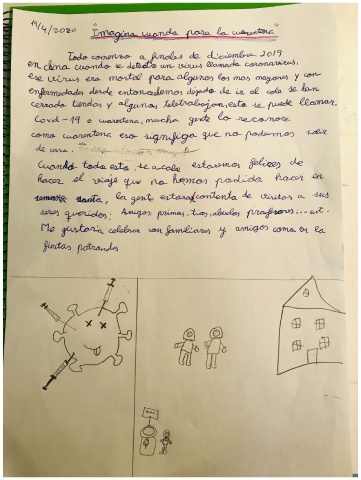 14/4/2020
"Imagina cuando pase la cuarentena"
Todo comenzo a finales de diciembre 2019
en china cuando se detecto un virus llamado coronavirus,
ese virus era mortal para algunos los mas mayores y con
enfermedades desde entonces hemos dejado de ir al cole se han
cerrado tiendas y algunos teletrabajan, esto se puede llamar
Covid-19 o cuarentena, mucha gente lo reconoce
como cuarentena eso significa que no podemos salir
de casa.
Cuando todo esto se acabe estaremos felices de
hacer el viaje que no hemos podido hacer en
semana santa, la gente estara contenta de visitar a sus
seres queridos: Amigos, primos, tios, abuelos profesores... ect.
Me gustaria celebrar con familiares y amigos como en la
fiestas patronales